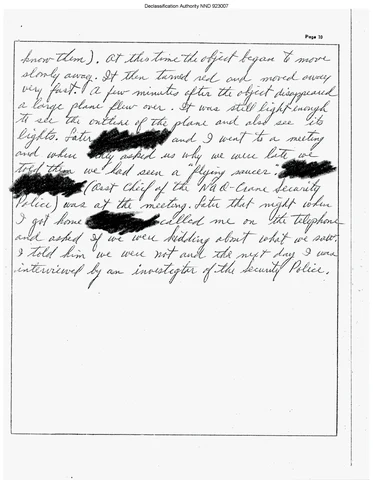 Declassification Authority NND 923007
Page 10
know them). At this time the object began to move
slowly away. It then turned red and moved away
very fast! A few minutes after the object disappeared
a large plane flew over. It was still light enough
to see the outline of the plane and also see its
lights. Later and I went to a meeting
and when they asked us why we were late we
told them we had seen a "flying saucer".
(Asst Chief of the NAD-Crane Security
Police) was at the meeting. Late that night when
I got home called me on the telephone
and asked if we were kidding about what we saw.
I told him we were not and the next day I was
interviewed by an investigtor of the security Police.